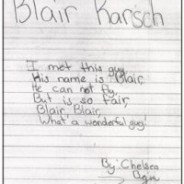 Blair Karsch
I met this guy
His name is Blair
He can not fly,
But is so fair,
Blair, Blair
What a wonderful guy!
By: Chelsea